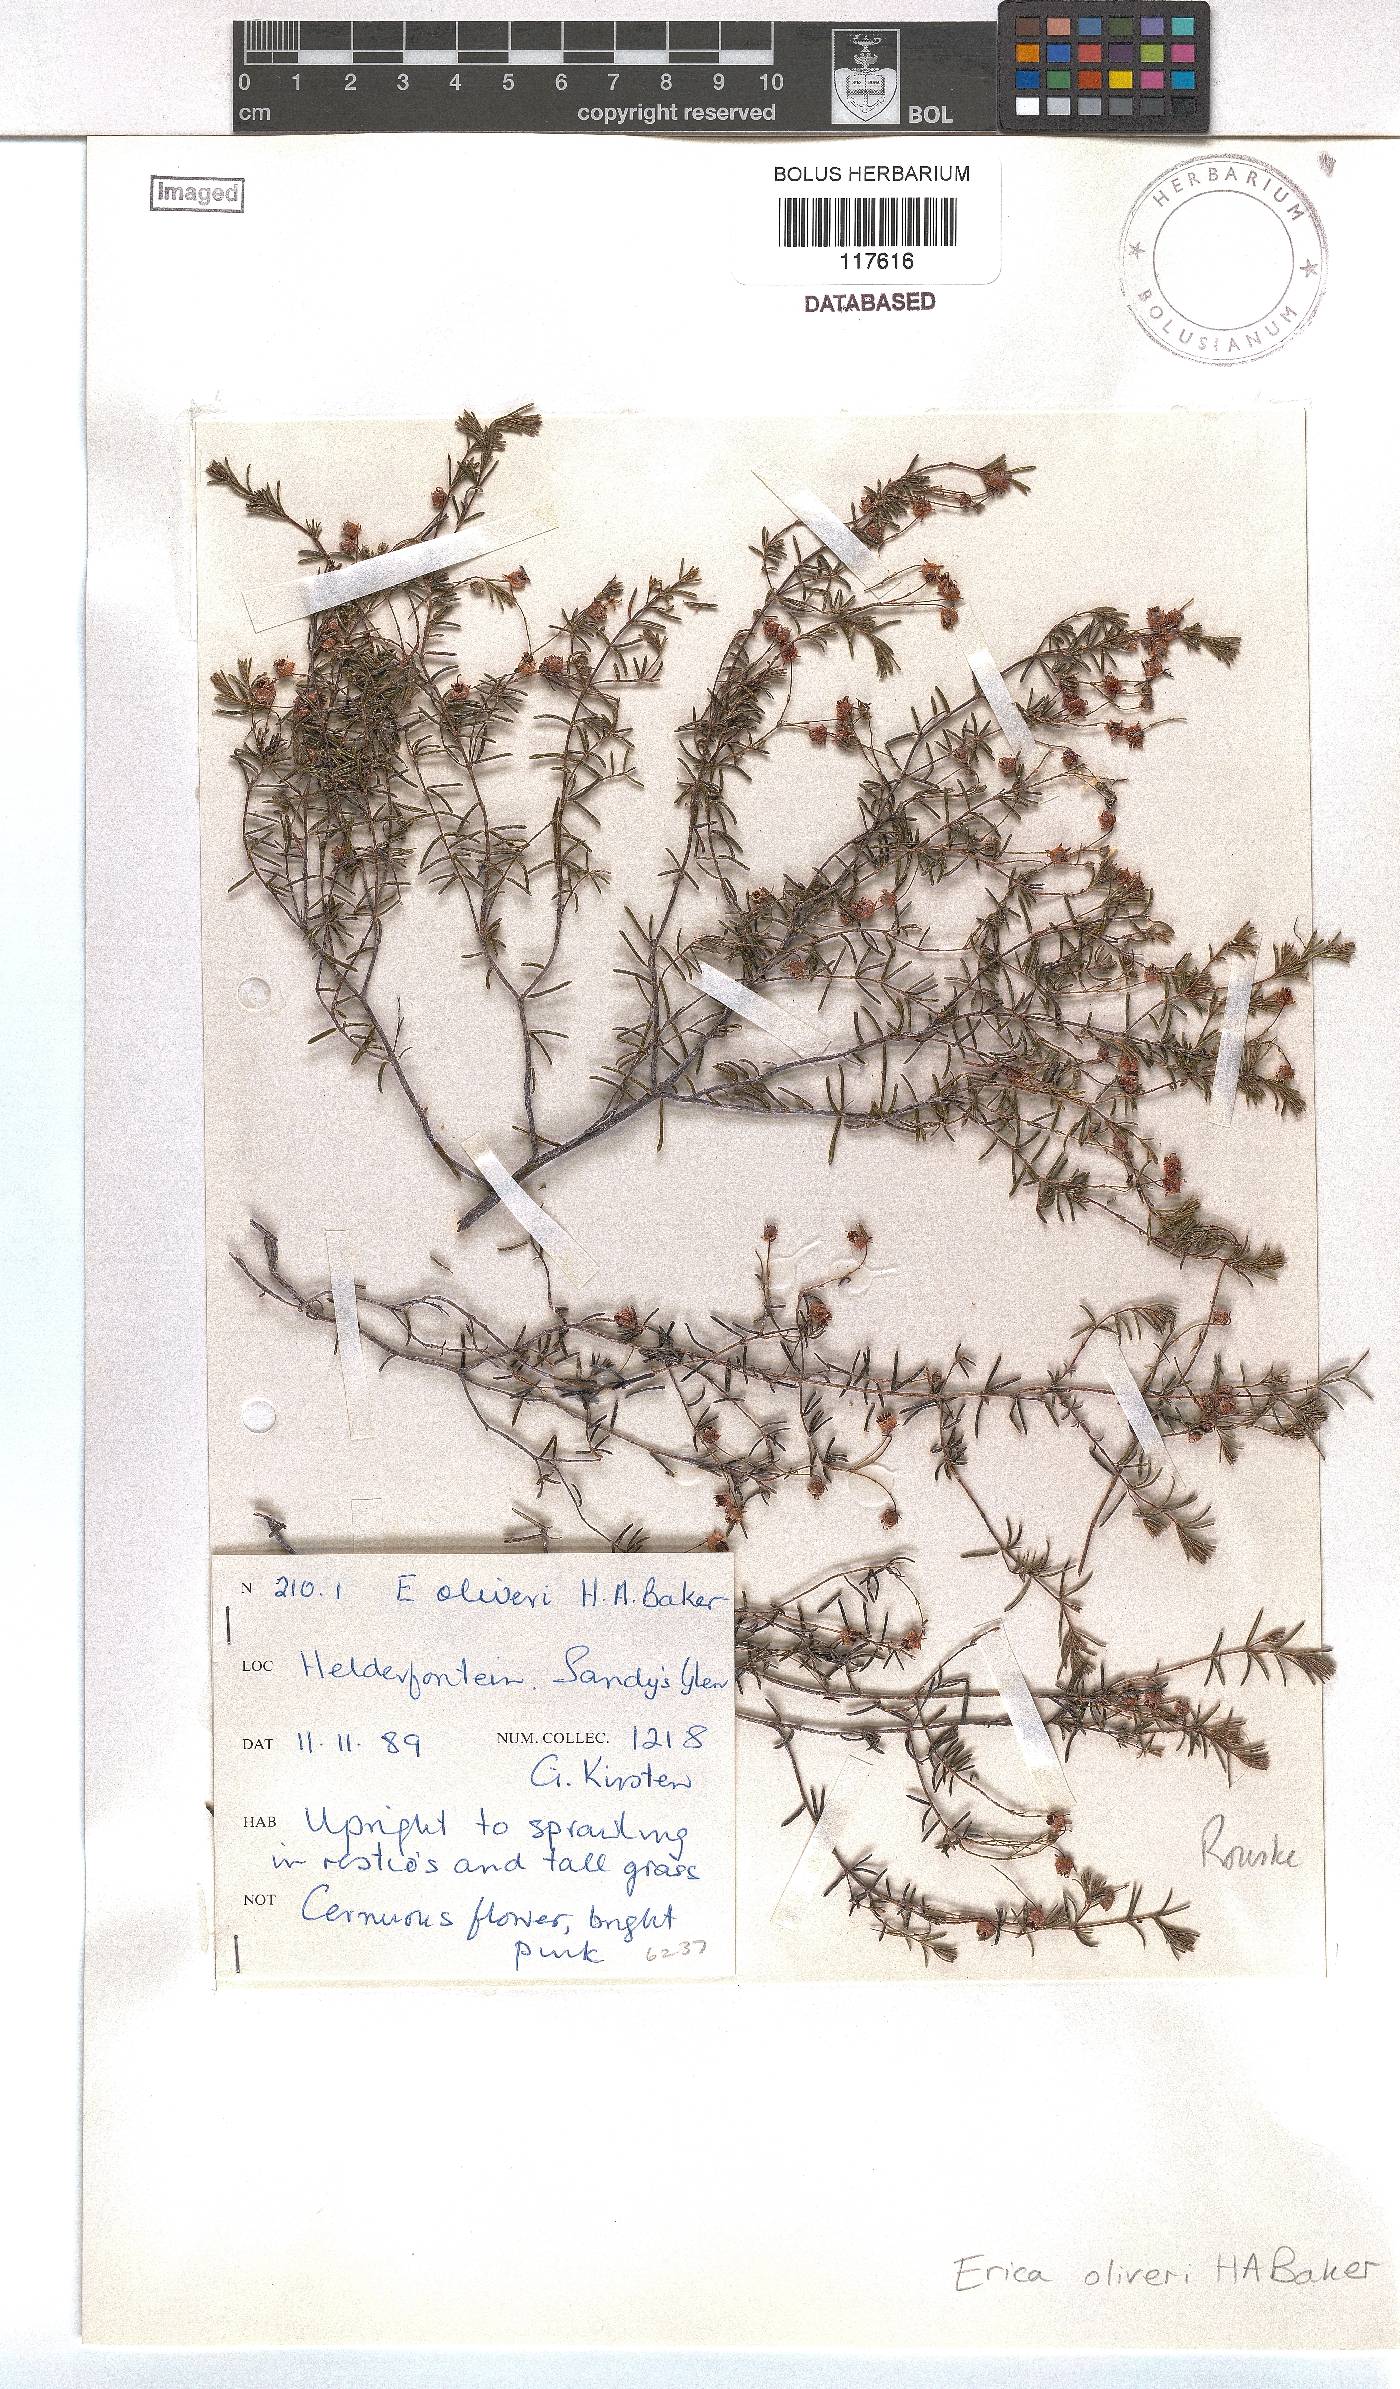 0 1 2 3 4 5 6 7 8 9 10
cm copyright reserved BOL
Imaged
BOLUS HERBARIUM
117616
DATABASED
HERBARIUM
BOLUSIANUM
N 210.1 E oliveri H.A.Baker
LOC Helderfontein. Sandy's Glen
DAT 11.11.89 NUM. COLLEC. 1218
G. Kirsten
HAB Upright to sprawling
in restio's and tall grass
NOT Cernuous flower, bright
pink 6237
Erica oliveri HABaker